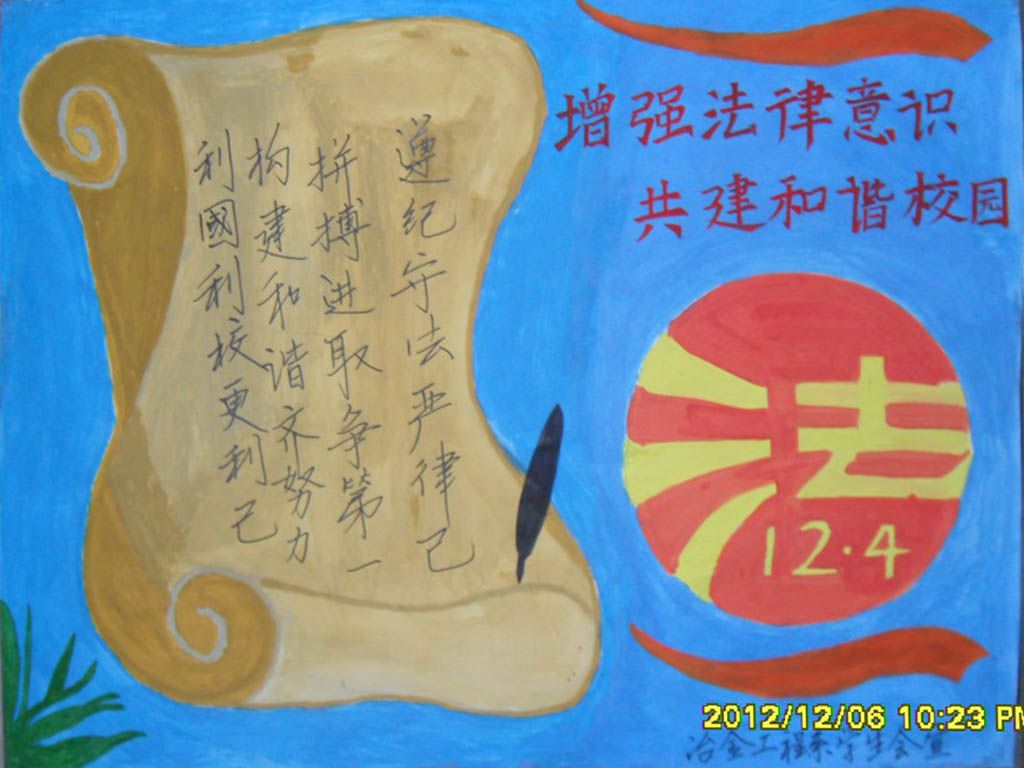 增强法律意识
共建和谐校园
遵纪守法严律己
拼搏进取争第一
构建和谐齐努力
利國利校更利己
法
12.4
2012/12/06 10:23 PM
冶金工程系学生会宣